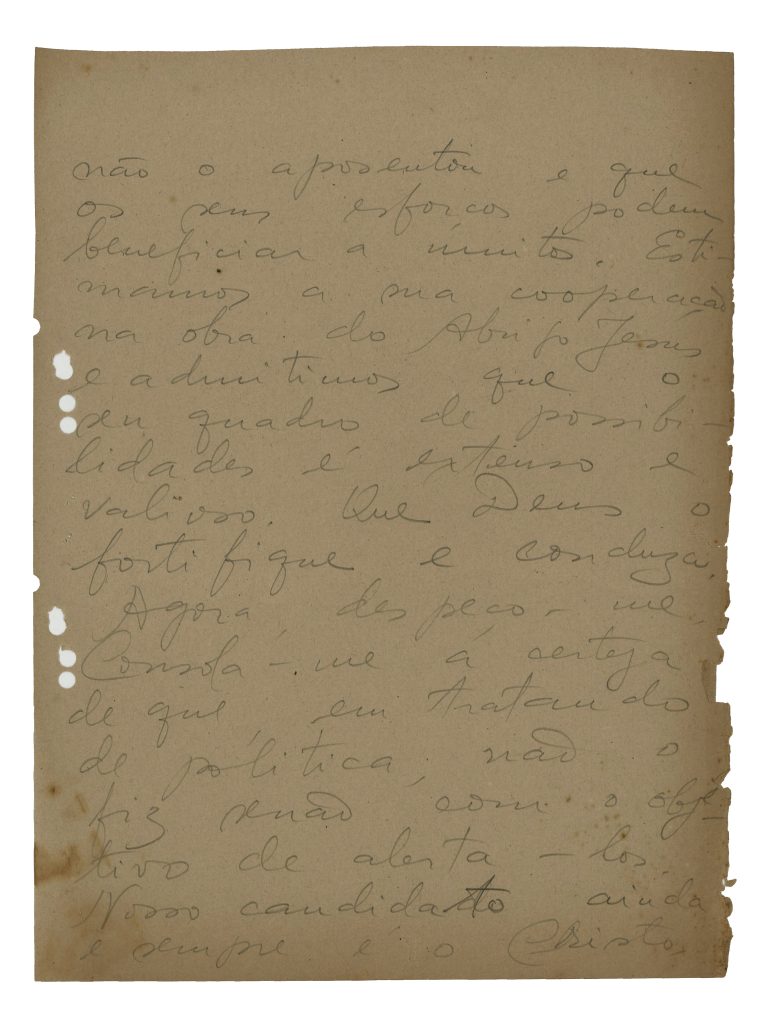 não o aposentou e que
os seus esforços podem
beneficiar a muitos. Esti-
mamos a sua cooperação
na obra do Abrigo Jesús
e admitimos que o
seu quadro de possibi-
lidades é extenso e
valioso. Que Deus o
fortifique e conduza.
Agora, despeço-me.
Consola-me á certeza
de que, em tratando
de política, não o
fiz senão com o obje-
tivo de alerta-los.
Nosso candidato ainda
e sempre é o Cristo.